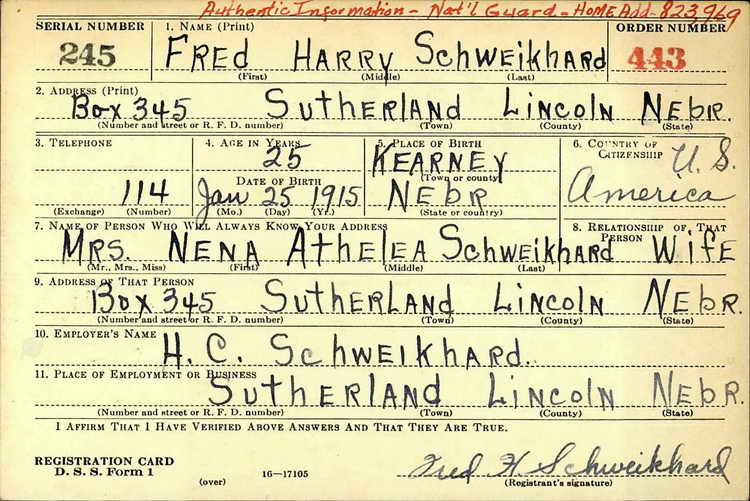 Authentic Information - Nat'l Guard - Home Add - 823,969
SERIAL NUMBER 1. NAME (Print) ORDER NUMBER
245 FREd HARRY SchwEikhARd 443
(First) (Middle) (Last)
2. ADDRESS (Print)
Box 345 SuthERlANd LiNcolN NEbR.
(Number and street or R. F. D. number) (Town) (County) (State)
3. TELEPHONE 4. AGE IN YEARS 5. PLACE OF BIRTH 6. COUNTRY OF CITIZENSHIP
25 KEARNEY U. S.
(Town or county)
DATE OF BIRTH
114 Jan 25 1915 NEbR America
(Exchange) (Number) (Mo.) (Day) (Yr.) (State or country)
7. NAME OF PERSON WHO WILL ALWAYS KNOW YOUR ADDRESS 8. RELATIONSHIP OF THAT PERSON
MRS. NENA AthElEA SchwEikhARd WifE
(Mr., Mrs., Miss) (First) (Middle) (Last)
9. ADDRESS OF THAT PERSON
Box 345 SuthERLANd LiNcolN NEbR.
(Number and street or R. F. D. number) (Town) (County) (State)
10. EMPLOYER'S NAME
H. C. SchwEikhARd.
11. PLACE OF EMPLOYMENT OR BUSINESS
SuthERLANd LiNcolN NEbR.
(Number and street or R. F. D. number) (Town) (County) (State)
I AFFIRM THAT I HAVE VERIFIED ABOVE ANSWERS AND THAT THEY ARE TRUE.
REGISTRATION CARD
D. S. S. Form 1 (over) 16-17105 Fred H. Schweikhard
(Registrant's signature)